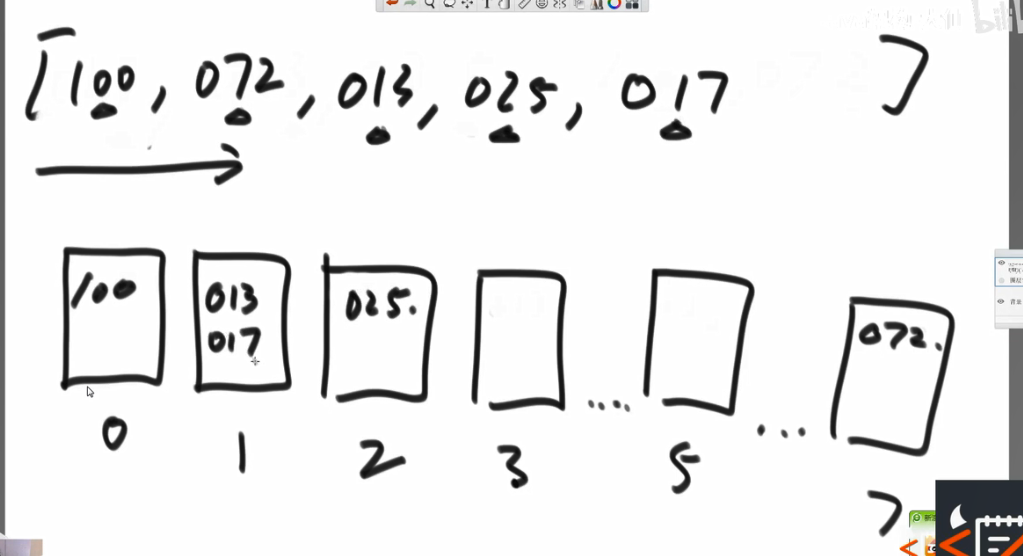 [100, 072, 013, 025, 017 ]
100
013
017
025.
072.
0 1 2 3 .... 5 ... 7